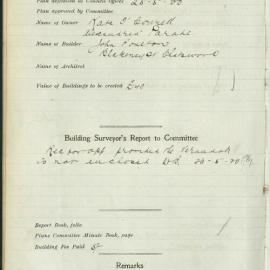 Plan deposited at Council Office 20-5-20
Plan approved by Committee
Name of Owner Kate O'Connell
Parade
Name of Builder John
Name of Architect
Value of Buildings to be erected £40
Building Surveyor's Report to Committee
Rec for app provided the Verandah
is not enclosed 20-5-20
Report Book, folio
Plans Committee Minute Book, page
Building Fee Paid
Remarks